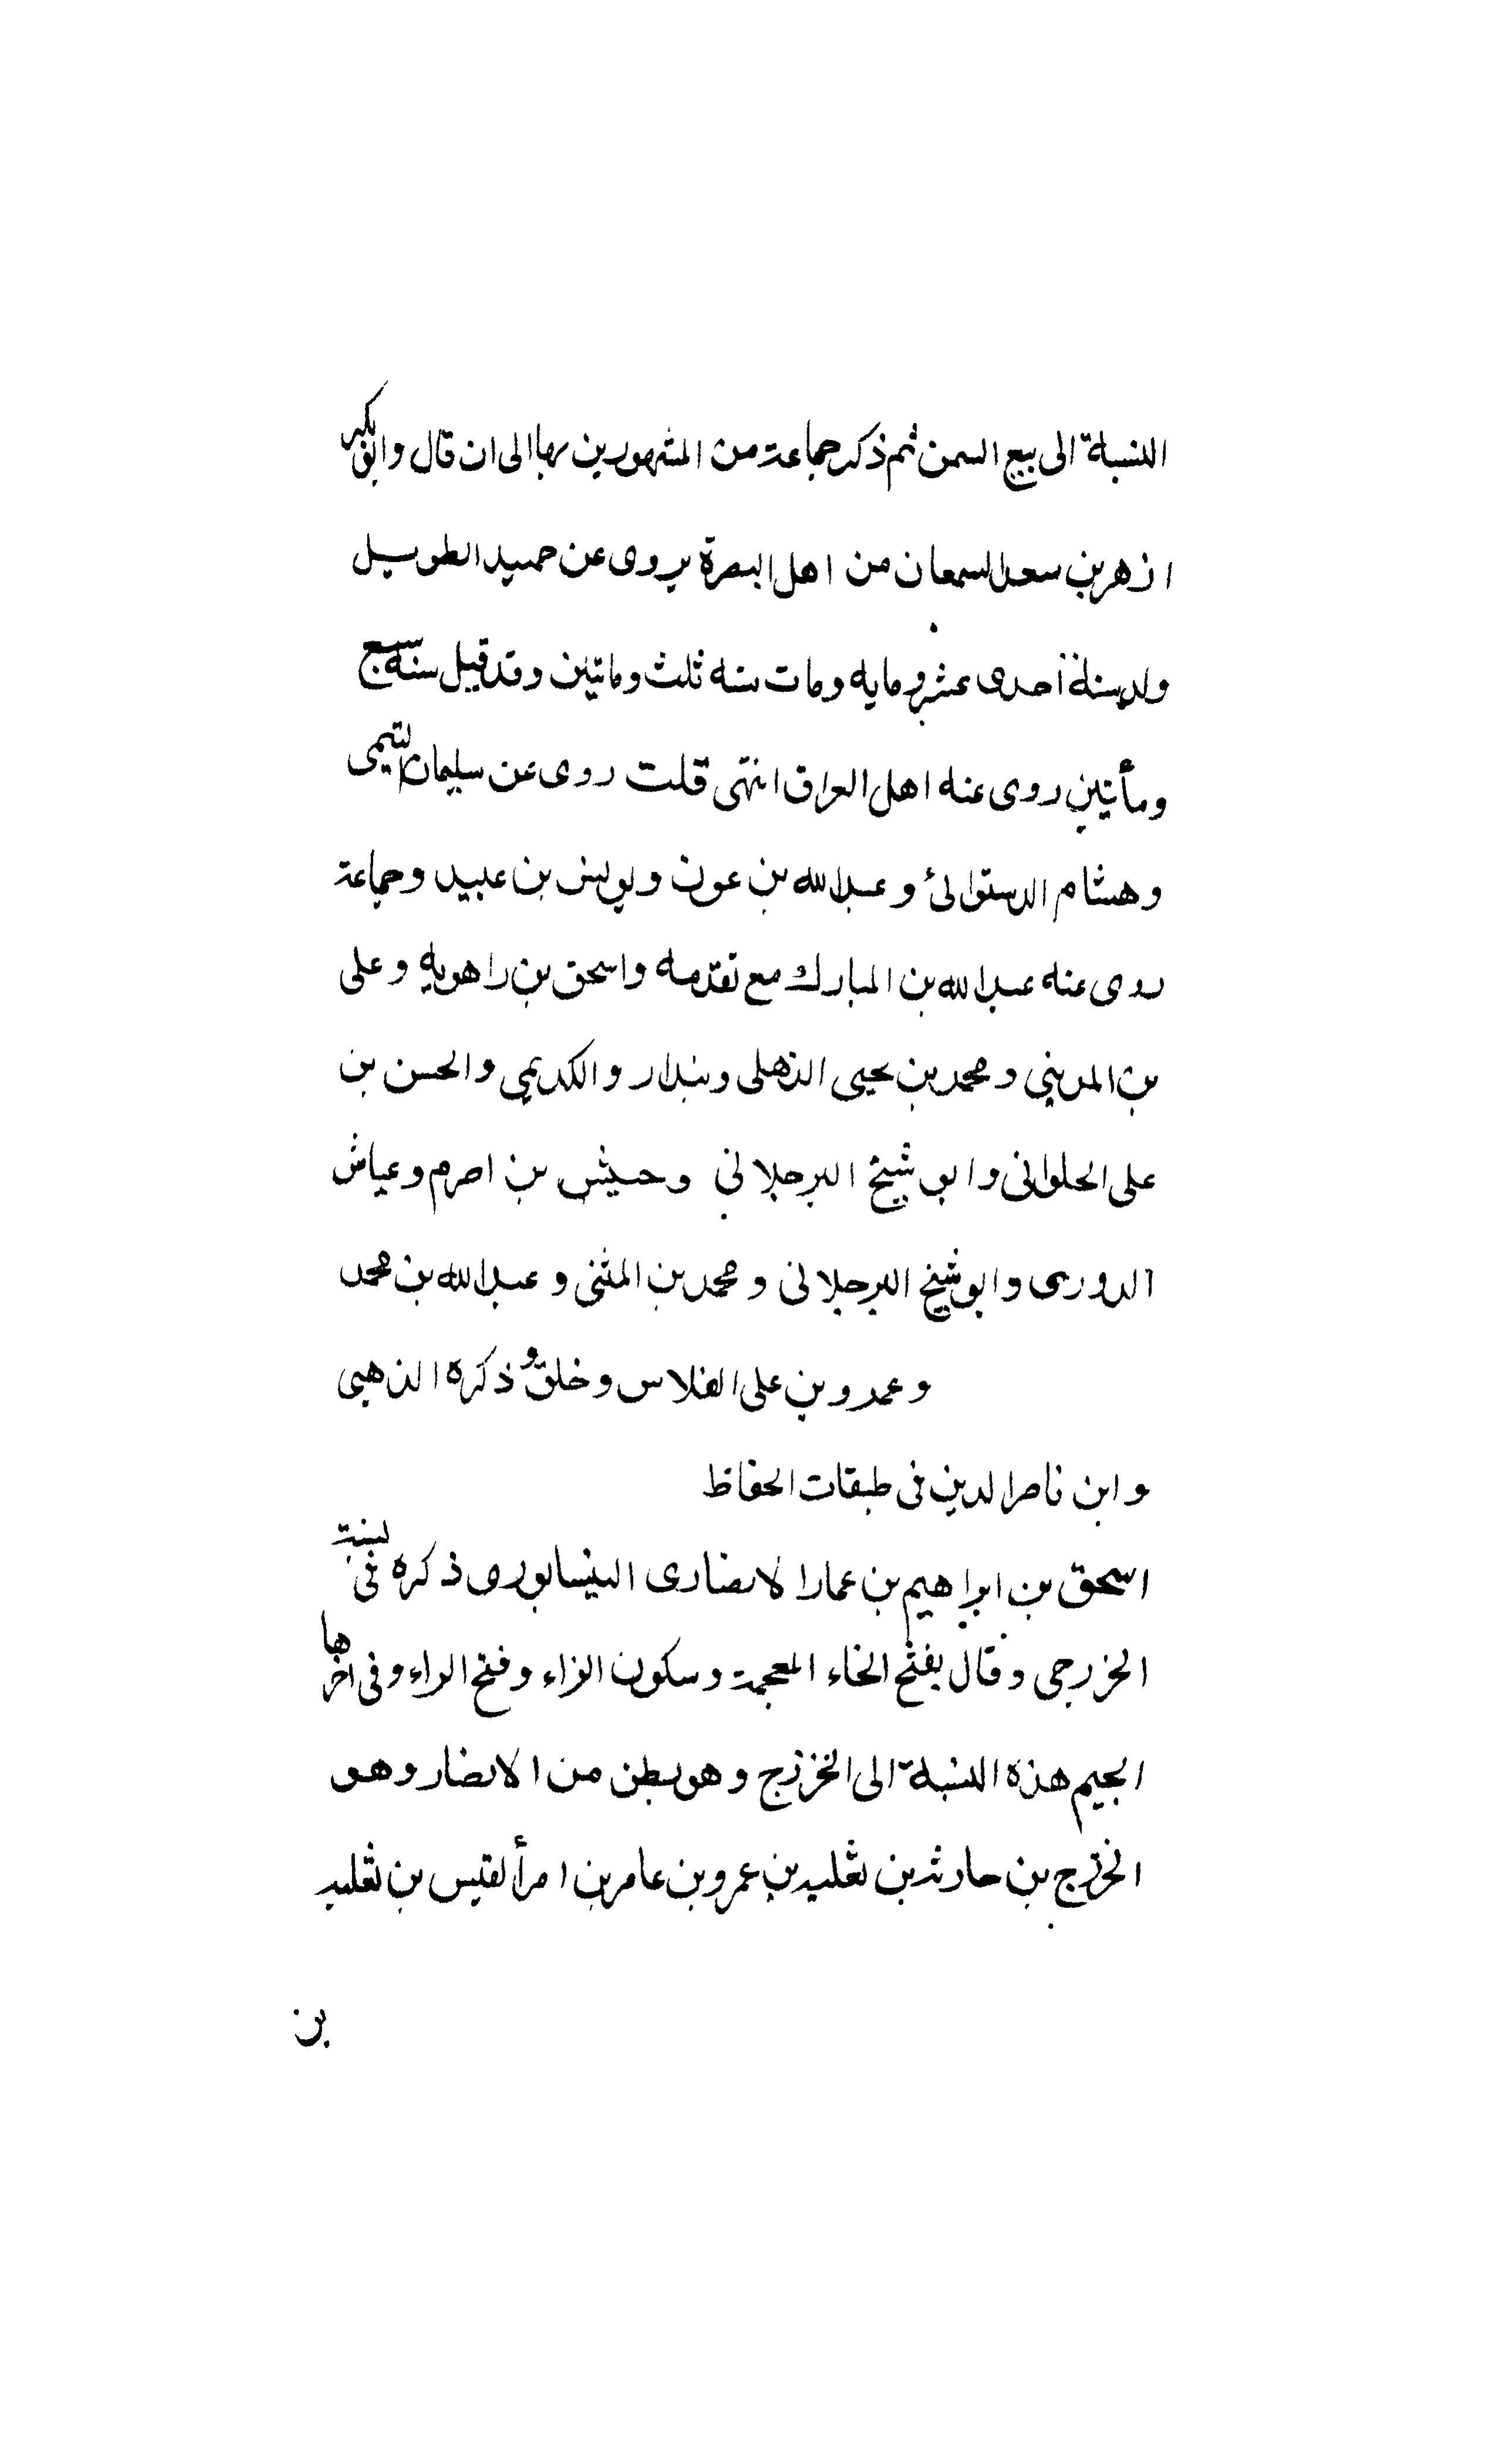 النسبة الى بيع السمن ثم ذكر جماعة من المشهورين بها الى ان قال وابو بكر
ازهر بن سعد السمعان من اهل البصرة يروى عن حميد الطويل
ولد سنة احدى عشر وماية ومات سنه ثلث وماتين وقد قيل سنه سبع
ومأتين روى عنه اهل العراق انتهى قلت روى عن سليمان التيمى
وهشام الدستوائى وعبد الله بن عون ويونس بن عبيد وجماعة
روى عنه عبد الله بن المبارك مع تقدمه واسحق بن راهويه وعلى
بن المدينى ومحمد بن يحيى الذهلى وبندار والكديمي والحسن بن
على الحلوانى وابو شيخ البرجلانى وحبيش بن اصرم وعياش
الدورى وابو شيخ البرجلانى ومحمد بن المثنى وعبد الله بن محمد
وعمرو بن على الفلاس وخلق وذكره الذهبى
وابن ناصر الدين فى طبقات الحفاظ
اسحق بن ابراهيم بن عمار الانصارى النيسابورى ذكره فى نسبة
الخزرجى وقال بفتح الخاء المعجمة وسكون الزاء وفتح الراء وفى اخرها
الجيم هذه النسبة الى الخزرج وهو بطن من الانصار وهو
الخزرج بن حارثه بن ثعلبه بن عمرو بن عامر بن امرأ لقيس بن ثعلبه
بن